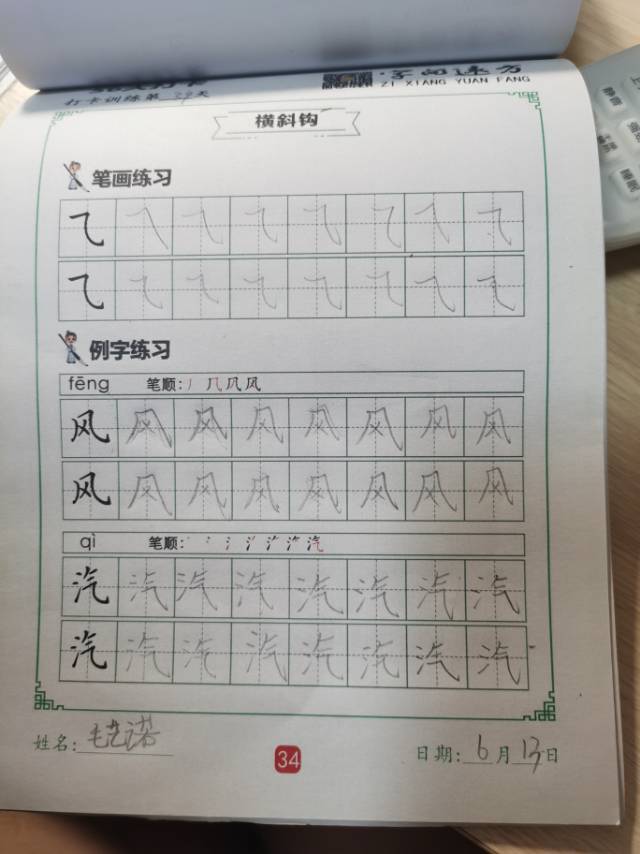 打卡训练第29天
ZI XIANG YUAN FANG
横斜钩
笔画练习
例字练习
fēng 笔顺:丿 几 凡 风
风 风 风 风 风 风 风 风
风 风 风 风 风 风 风 风
qì 笔顺:
汽 汽 汽 汽 汽 汽 汽 汽
汽 汽 汽 汽 汽 汽 汽 汽
姓名:毛艺诺
34
日期:6月13日